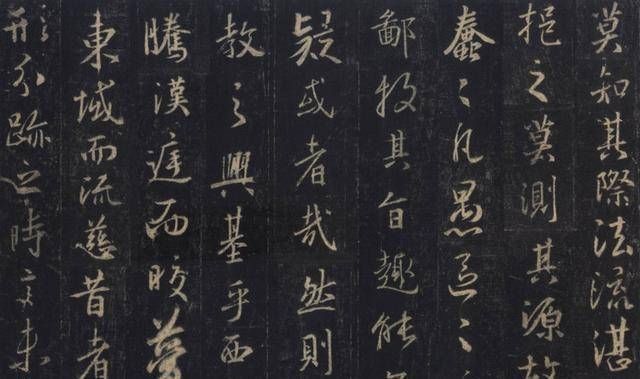 莫知其際法流湛
挹之莫測其源故
蠢〻凡愚區〻
鄙投其旨趣能
疑或者哉然則
教之興基乎西
騰漢庭而皎夢
東域而流慈昔者
形分跡之時言未